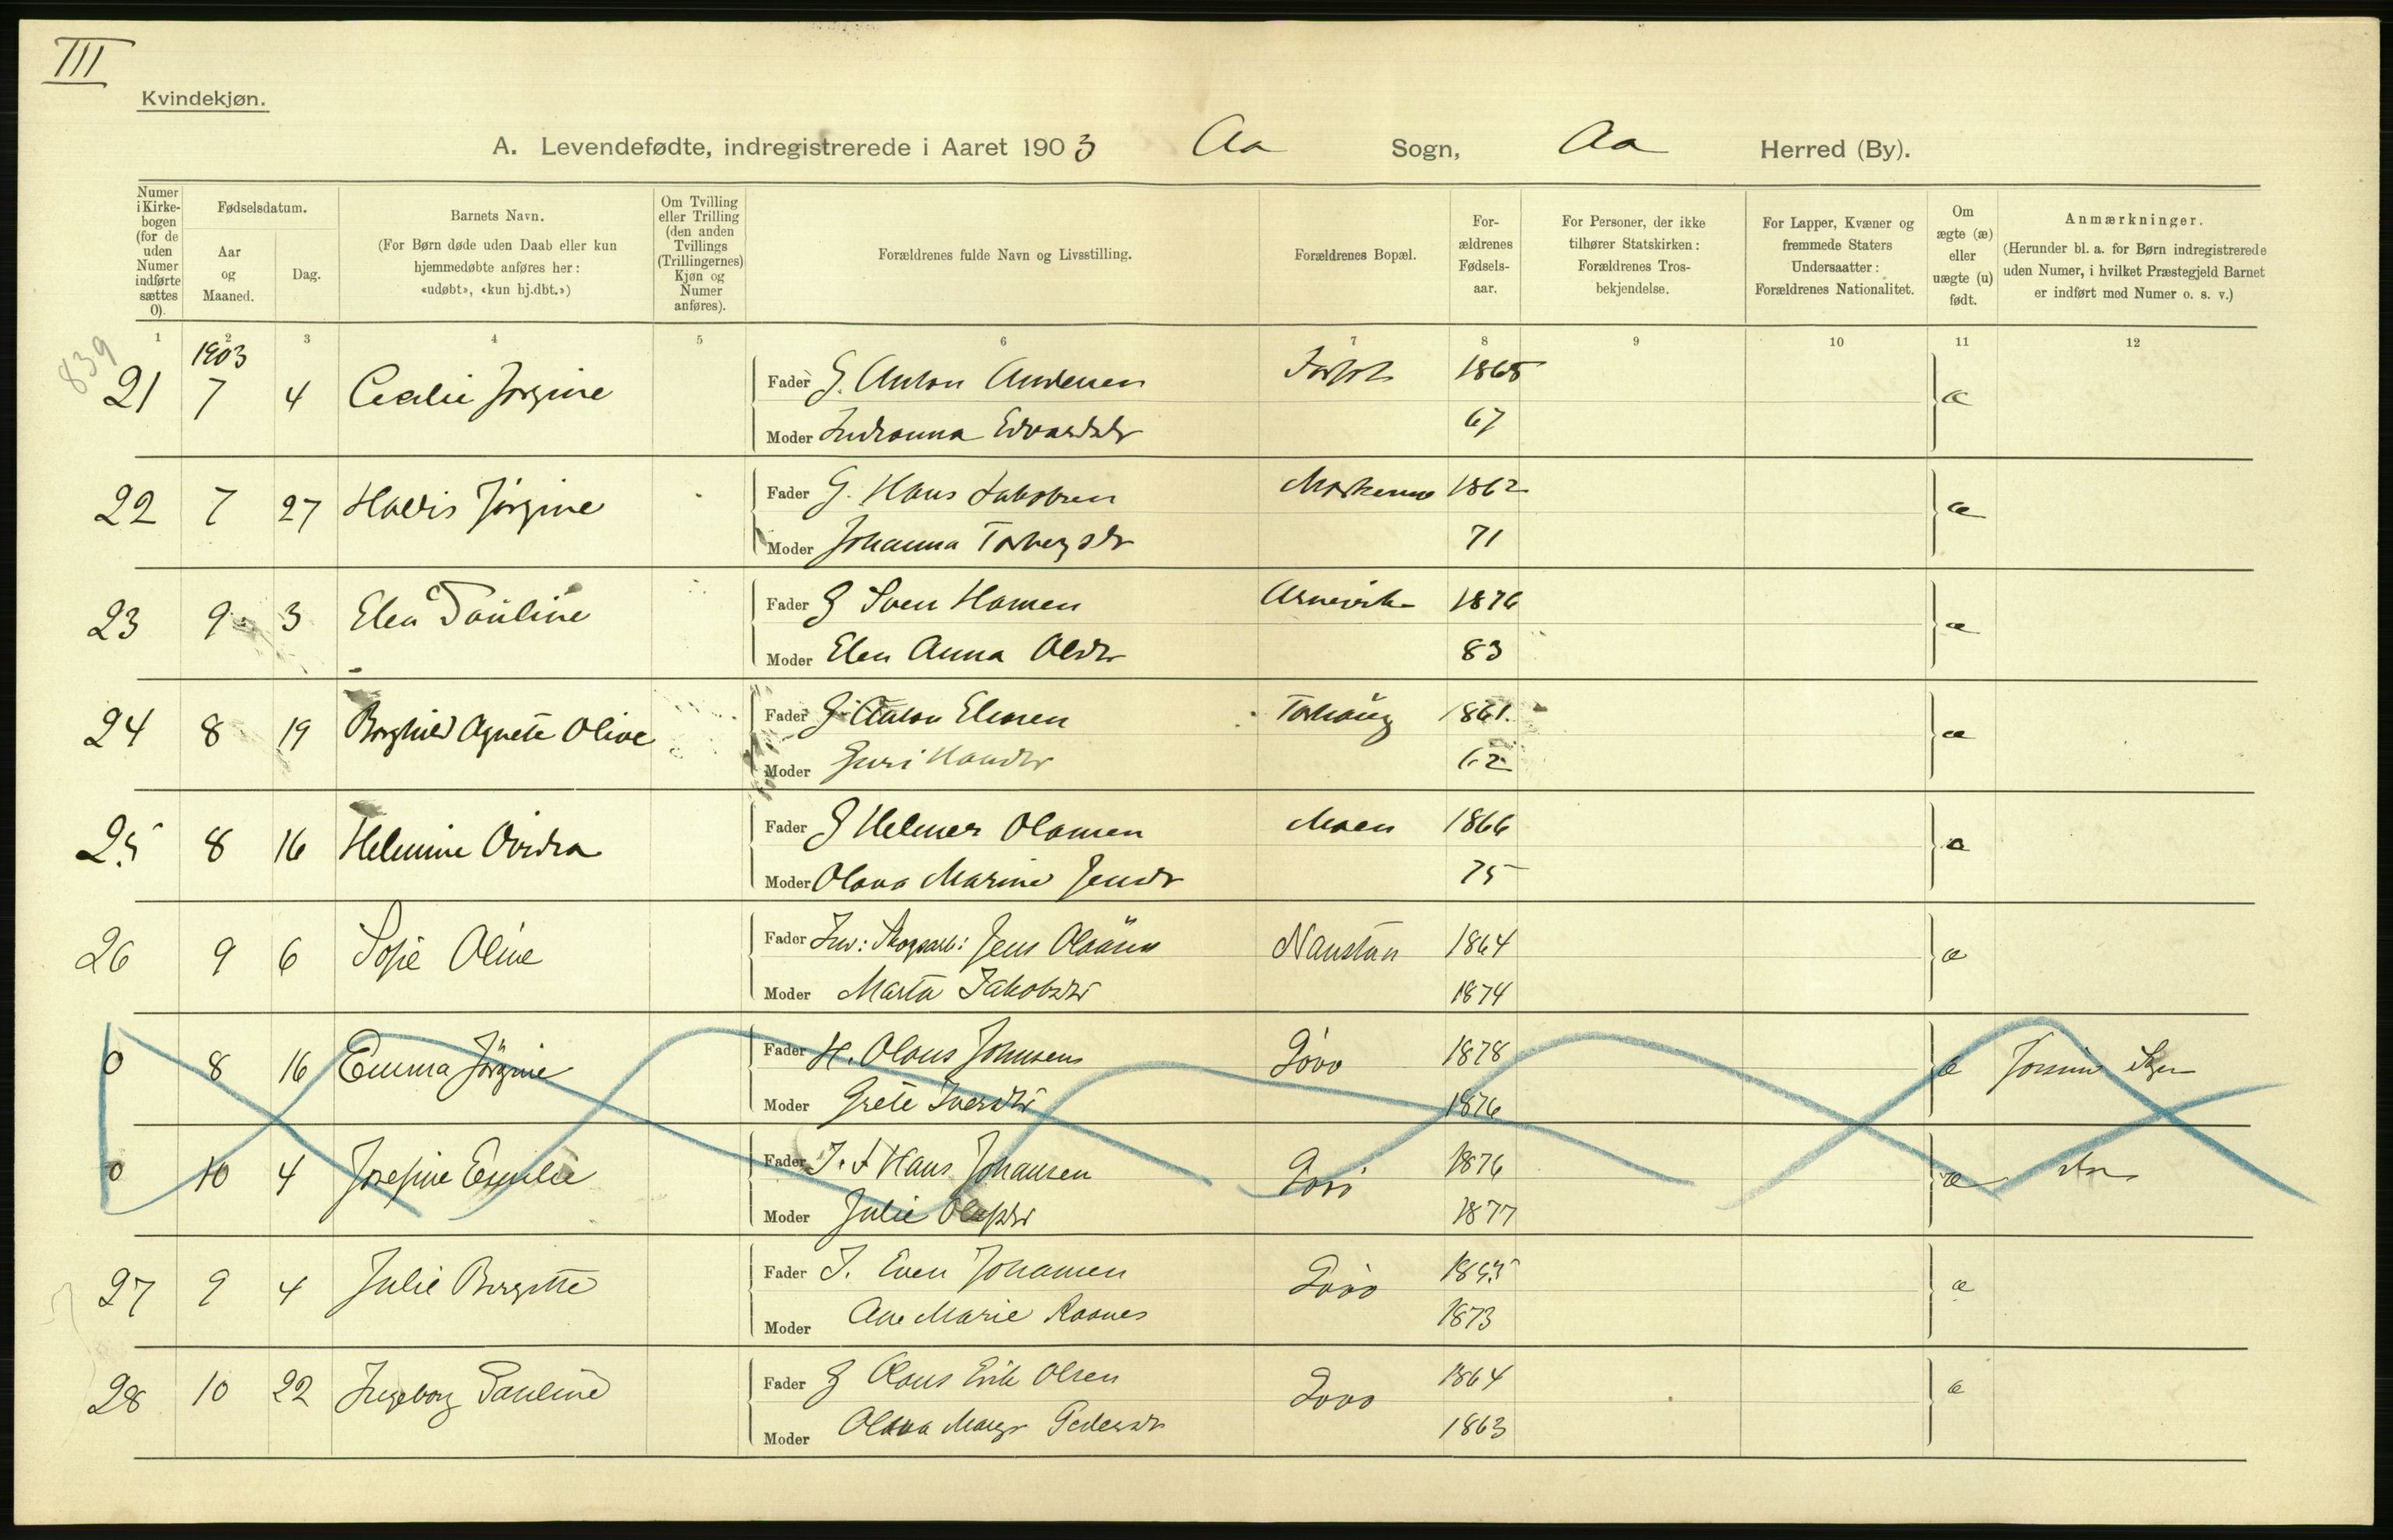 III
Kvindekjøn.
A. Levendefødte, indregistrerede i Aaret 1903 Aa Sogn, Aa Herred (By).
Numer i Kirkebogen (for de uden Numer indførte sættes 0).
Fødselsdatum.
Aar og Maaned.
Dag.
Barnets Navn.
(For Børn døde uden Daab eller kun hjemmedøbte anføres her: «udøbt», «kun hj.dbt.»)
Om Tvilling eller Trilling (den anden Tvillings (Trillingernes) Kjøn og Numer anføres).
Forældrenes fulde Navn og Livsstilling.
Forældrenes Bopæl.
For-ældrenes Fødsels-aar.
For Personer, der ikke tilhører Statskirken: Forældrenes Tros-bekjendelse.
For Lapper, Kvæner og fremmede Staters Undersaatter: Forældrenes Nationalitet.
Om ægte (æ) eller uægte (u) født.
Anmærkninger.
(Herunder bl. a. for Børn indregistrerede uden Numer, i hvilket Præstegjeld Barnet er indført med Numer o. s. v.)
1 2 3 4 5 6 7 8 9 10 11 12
839
1903
21 7 4 Cecilie Jørgine Fader G. Anton Andersen 1865 æ
Moder Indianna 67
22 7 27 Hallis Jørgine Fader G. Hans Jakobsen 1862 æ
Moder Johanna 71
23 9 3 Elen Pauline Fader G Sven Hansen Arnevik 1876 æ
Moder Elen Anna Olsdtr 83
24 8 19 Borghild Agnete Olive Fader G Anton Eliasen Torhaug 1861 æ
Moder Guri Hansdtr 62
25 8 16 Helmine Fader G Helmer Olausen Moen 1866 æ
Moder Olava Marine Jensdr 75
26 9 6 Sofie Oline Fader Jens Naustan 1864 æ
Moder Marta Jakobsdr 1874
0 8 16 Emma Jörgine Fader H. Olaus Johnsen 1878 æ
Moder Grete Iversdr 1876
0 10 4 Josefine Emilie Fader Hans Johansen 1876 æ
Moder Julie 1877
27 9 4 Julie Bergitte Fader J. Even Johansen æ
Moder Ane Marie 1873
28 10 22 Ingeborg Pauline Fader G Olaus Erik Olsen 1864 æ
Moder Olava Pedersdr 1863